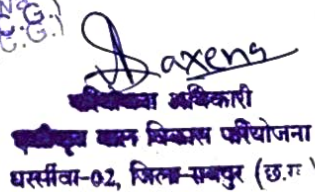 Saxena
परियोजना अधिकारी
एकीकृत बाल विकास परियोजना
धरसींवा-02, जिला-रायपुर (छ.ग.)